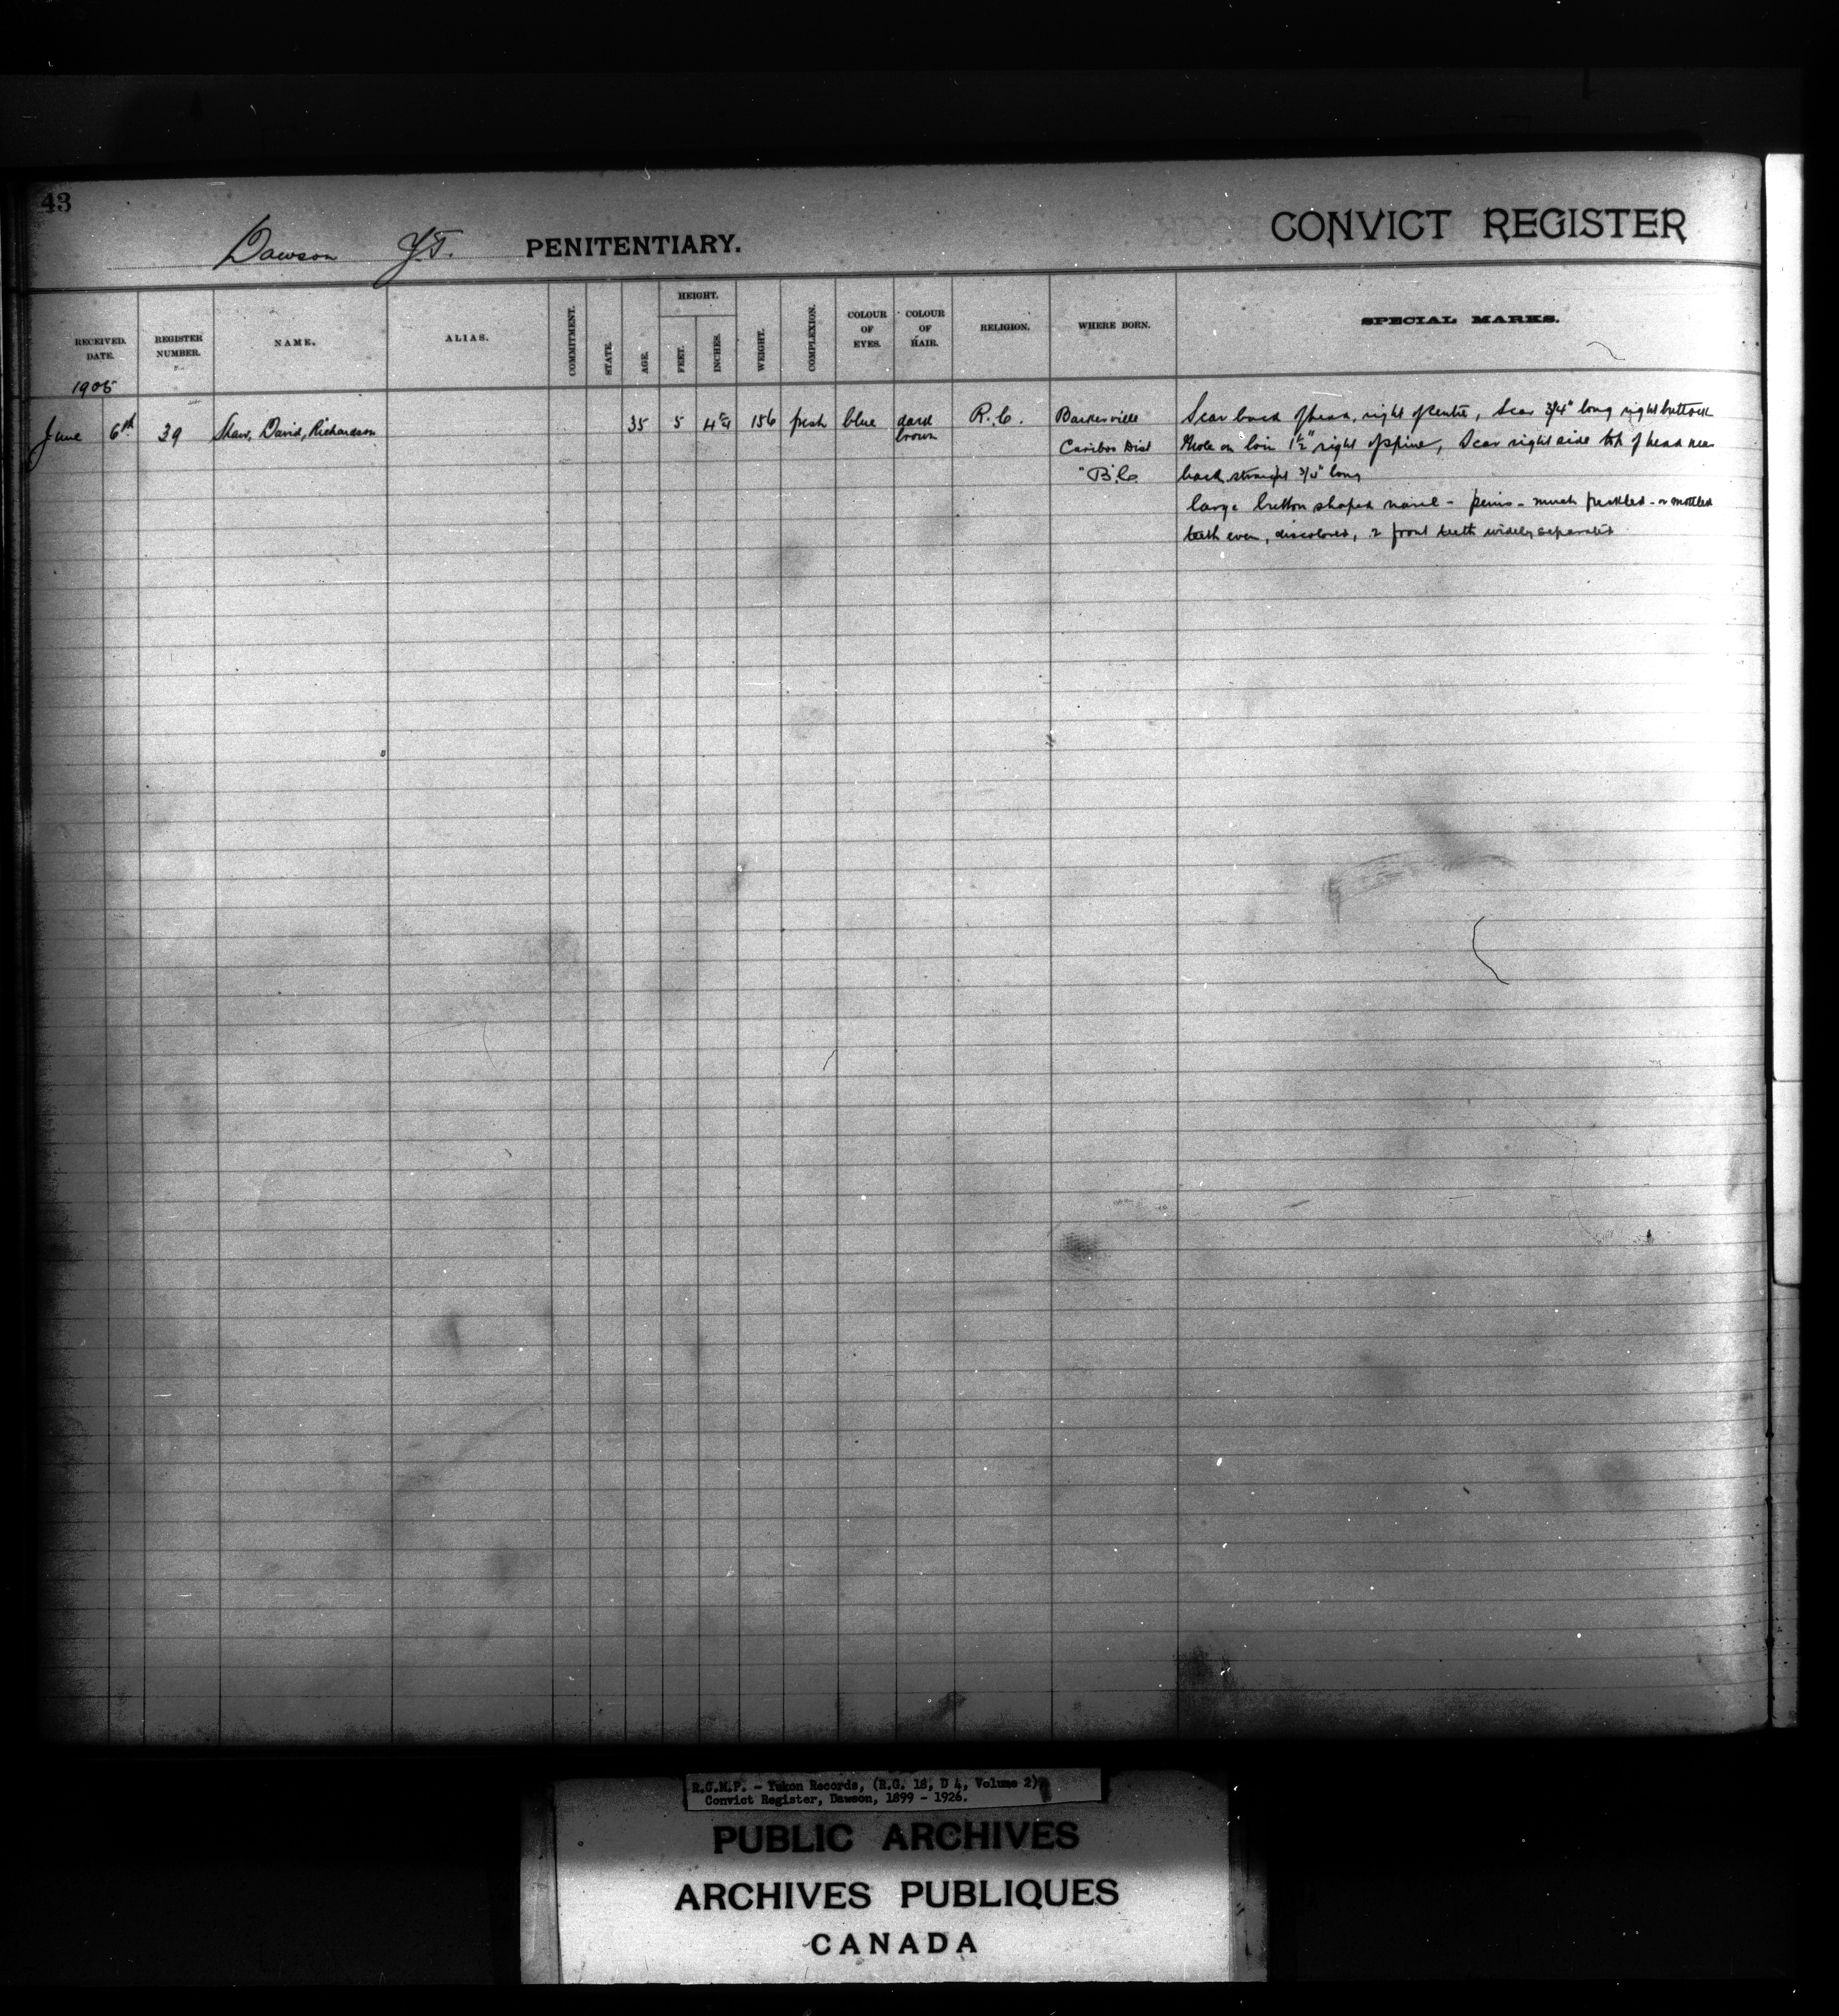 43
Dawson Y.T. PENITENTIARY. CONVICT REGISTER
RECEIVED. DATE. REGISTER NUMBER. NAME. ALIAS. COMMITMENT. STATE. AGE. HEIGHT. FEET. INCHES. WEIGHT. COMPLEXION. COLOUR OF EYES. COLOUR OF HAIR. RELIGION. WHERE BORN. SPECIAL MARKS.
1905
June 6th 39 Shaw, David, Richardson 35 5 156 fresh blue dark R.C. Barkerville Scar back of head, right of centre, Scar 3/4" long right buttock
brown Cariboo Dist Mole on loin 1 1/2" right of spine, Scar right side top of head near
B.C. back straight 3/4" long
large button shaped navel - penis - much freckled - or mottled
teeth even, discolored, 2 front teeth widely separated
R.C.M.P. - Yukon Records, (R.G. 18, D 4, Volume 2)
Convict Register, Dawson, 1899 - 1926.
PUBLIC ARCHIVES
ARCHIVES PUBLIQUES
CANADA